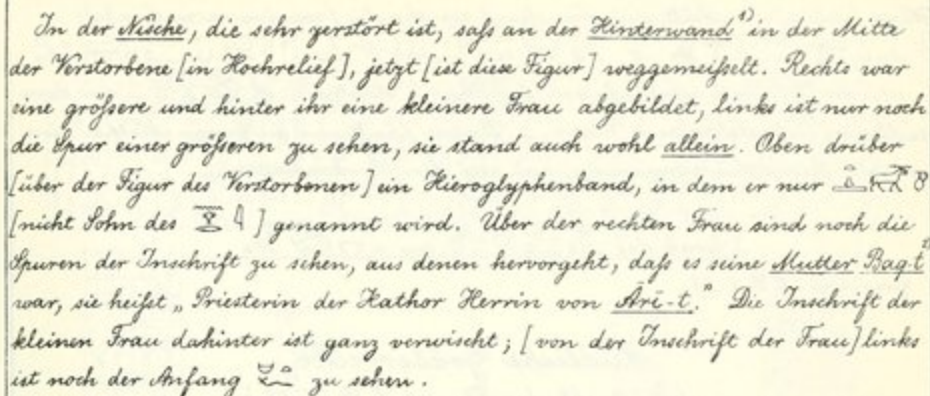 In der Nische, die sehr zerstört ist, saſs an der Hinterwand¹⁾ in der Mitte
der Verstorbene [in Hochrelief], jetzt [ist diese Figur] weggemeiſselt. Rechts war
eine gröſsere und hinter ihr eine kleinere Frau abgebildet, links ist nur noch
die Spur einer gröſseren zu sehen, sie stand auch wohl allein. Oben drüber
[über der Figur des Verstorbenen] ein Hieroglyphenband, in dem er nur
[nicht Sohn des ] genannt wird. Über der rechten Frau sind noch die
Spuren der Inschrift zu sehen, aus denen hervorgeht, daſs es seine Mutter Baq-t²⁾
war, sie heiſst „Priesterin der Hathor Herrin von Ārī-t.” Die Inschrift der
kleinen Frau dahinter ist ganz verwischt; [von der Inschrift der Frau] links
ist noch der Anfang zu sehen.